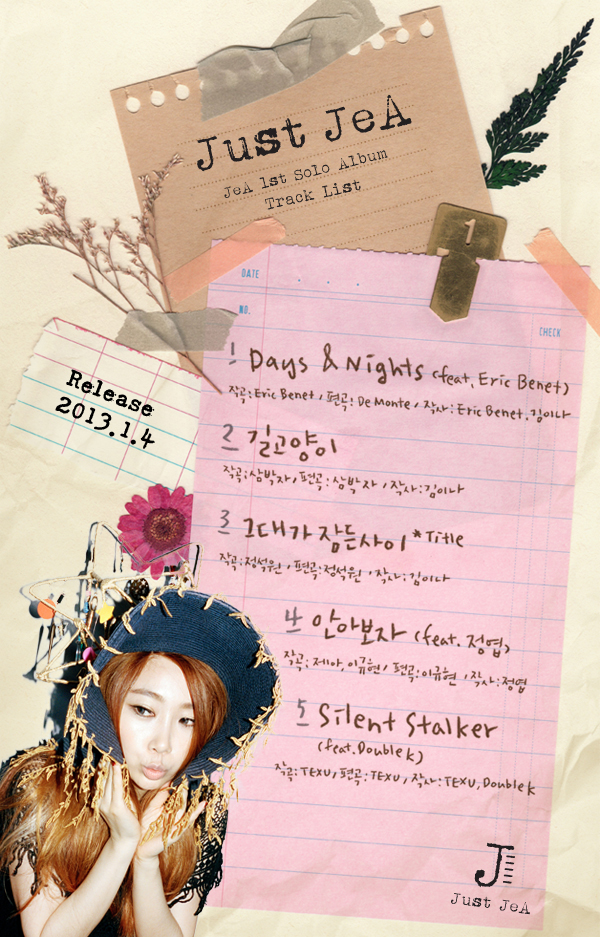 Just JeA
JeA 1st Solo Album
Track List
1
DATE
NO.
CHECK
Release
2013.1.4
1 Days & Nights (feat. Eric Benet)
작곡: Eric Benet / 편곡: De Monte / 작사: Eric Benet, 김이나
2 길고양이
작곡: 삼박자 / 편곡: 삼박자 / 작사: 김이나
3 그대가 잠든 사이 *Title
작곡: 정석원 / 편곡: 정석원 / 작사: 김이나
4 안아보자 (feat. 정엽)
작곡: 제아, 이규현 / 편곡: 이규현 / 작사: 정엽
5 Silent Stalker
(feat. Double k)
작곡: TEXU, 편곡: TEXU, 작사: TEXU, Double k
J
Just JeA